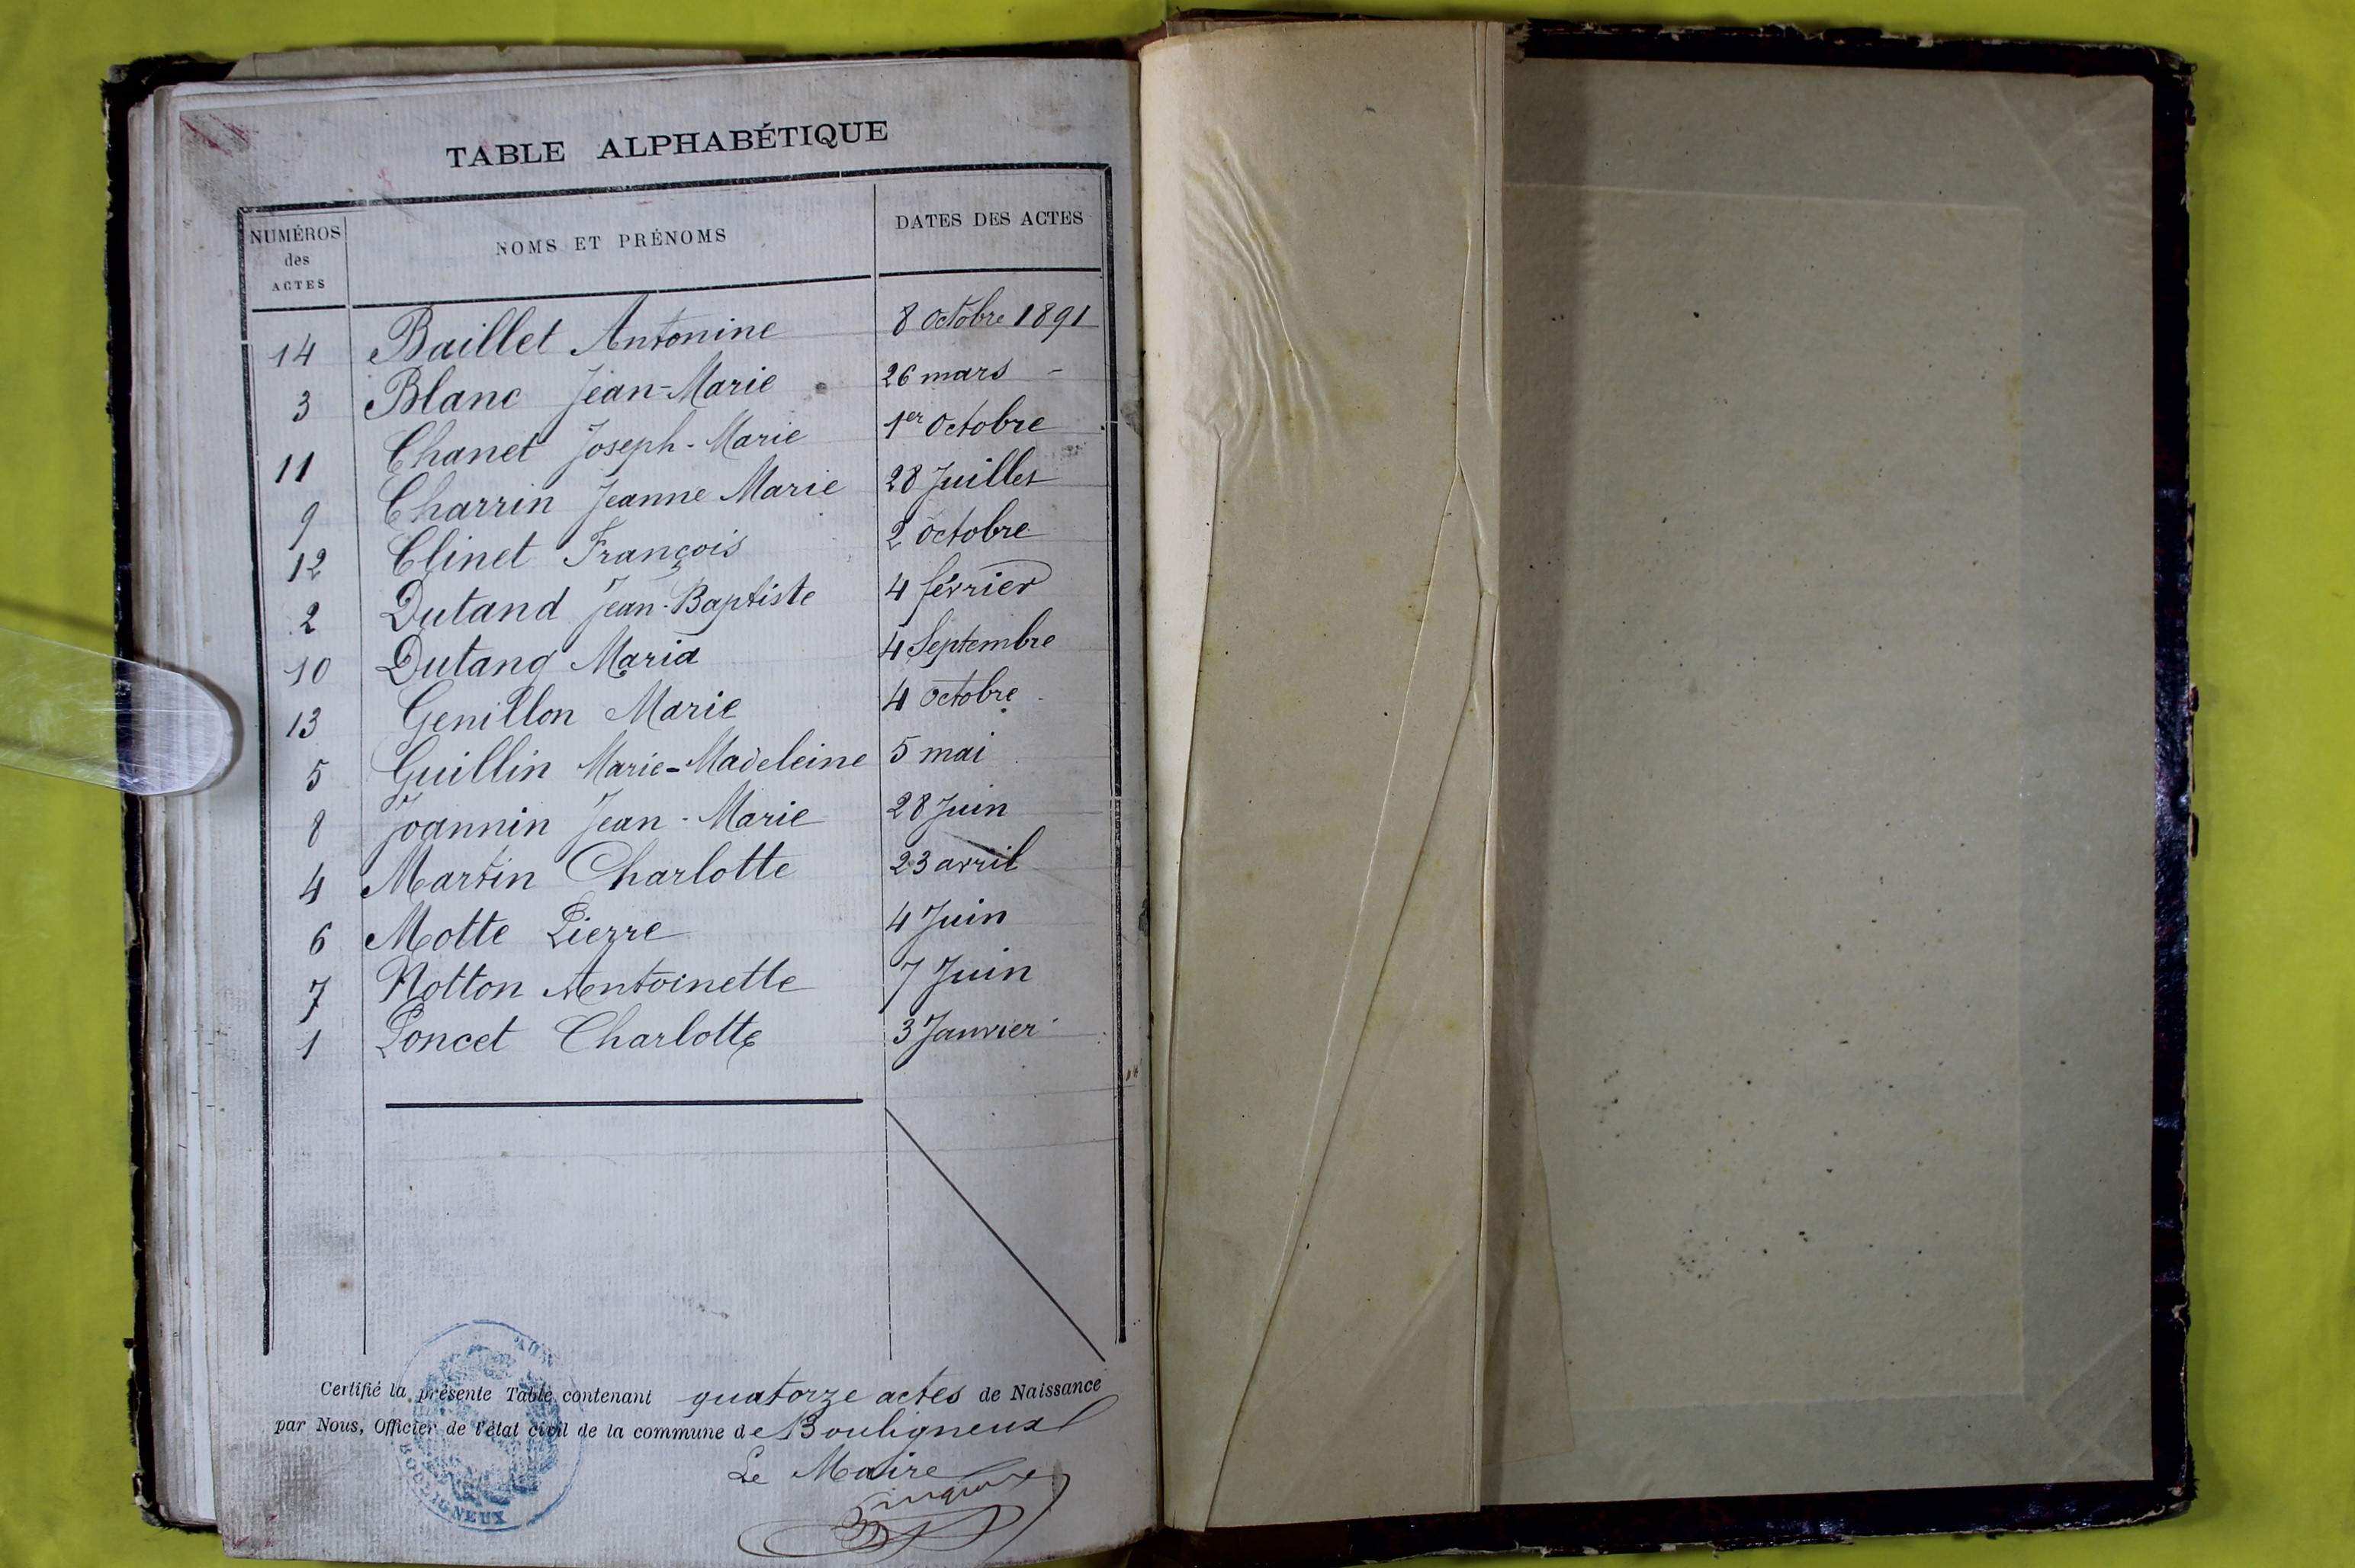 TABLE ALPHABÉTIQUE
NUMÉROS des ACTES NOMS ET PRÉNOMS DATES DES ACTES
14 Baillet Antonine 8 Octobre 1891
3 Blanc Jean-Marie 26 mars -
11 Chanet Joseph-Marie 1er Octobre
9 Charrin Jeanne Marie 28 Juillet
12 Clinet François 2 Octobre
2 Dutand Jean-Baptiste 4 février
10 Dutang Maria 4 Septembre
13 Genillon Marie 4 Octobre
5 Guillin Marie-Madeleine 5 mai
8 Joannin Jean-Marie 28 Juin
4 Martin Charlotte 23 avril
6 Motte Pierre 4 Juin
7 Notton Antoinette 7 Juin
1 Poncet Charlotte 3 Janvier
Certifié la présente Table contenant quatorze actes de Naissance
par Nous, Officier de l'état civil de la commune de Bouligneux
Le Maire
BOULIGNEUX